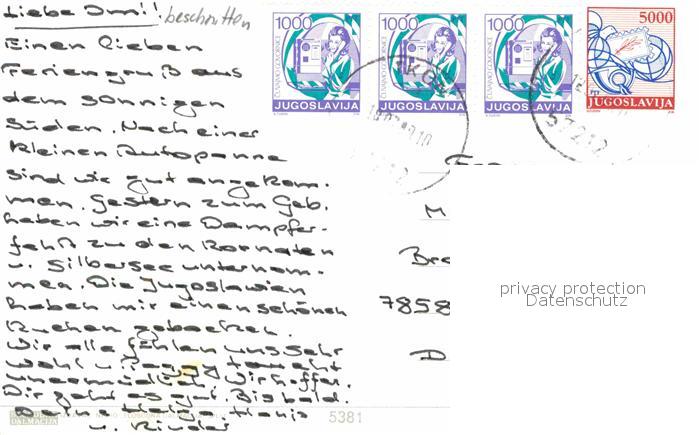 Liebe Omi!! beschnitten
Einen lieben
Feriengruß aus
dem sonnigen
Süden. Nach einer
kleinen Autopanne
sind wir gut angekom.
men. Gestern zum Geb.
haben wir eine Dampfer-
fahrt zu den Kornaten
u. Silbersee unternom-
men. Die Jugoslawien
haben mir einen schönen
Kuchen gebacken.
Wir alle fühlen uns sehr
wohl u. taucht
unermüdlich. Wir hoffen
Dir geht es gut. Bis bald.
u. Kinder
1000
JUGOSLAVIJA
1000
JUGOSLAVIJA
1000
JUGOSLAVIJA
5000
PTT
JUGOSLAVIJA
57212
M
Bre
7858
D
privacy protection
Datenschutz
DALMACIJA
5381